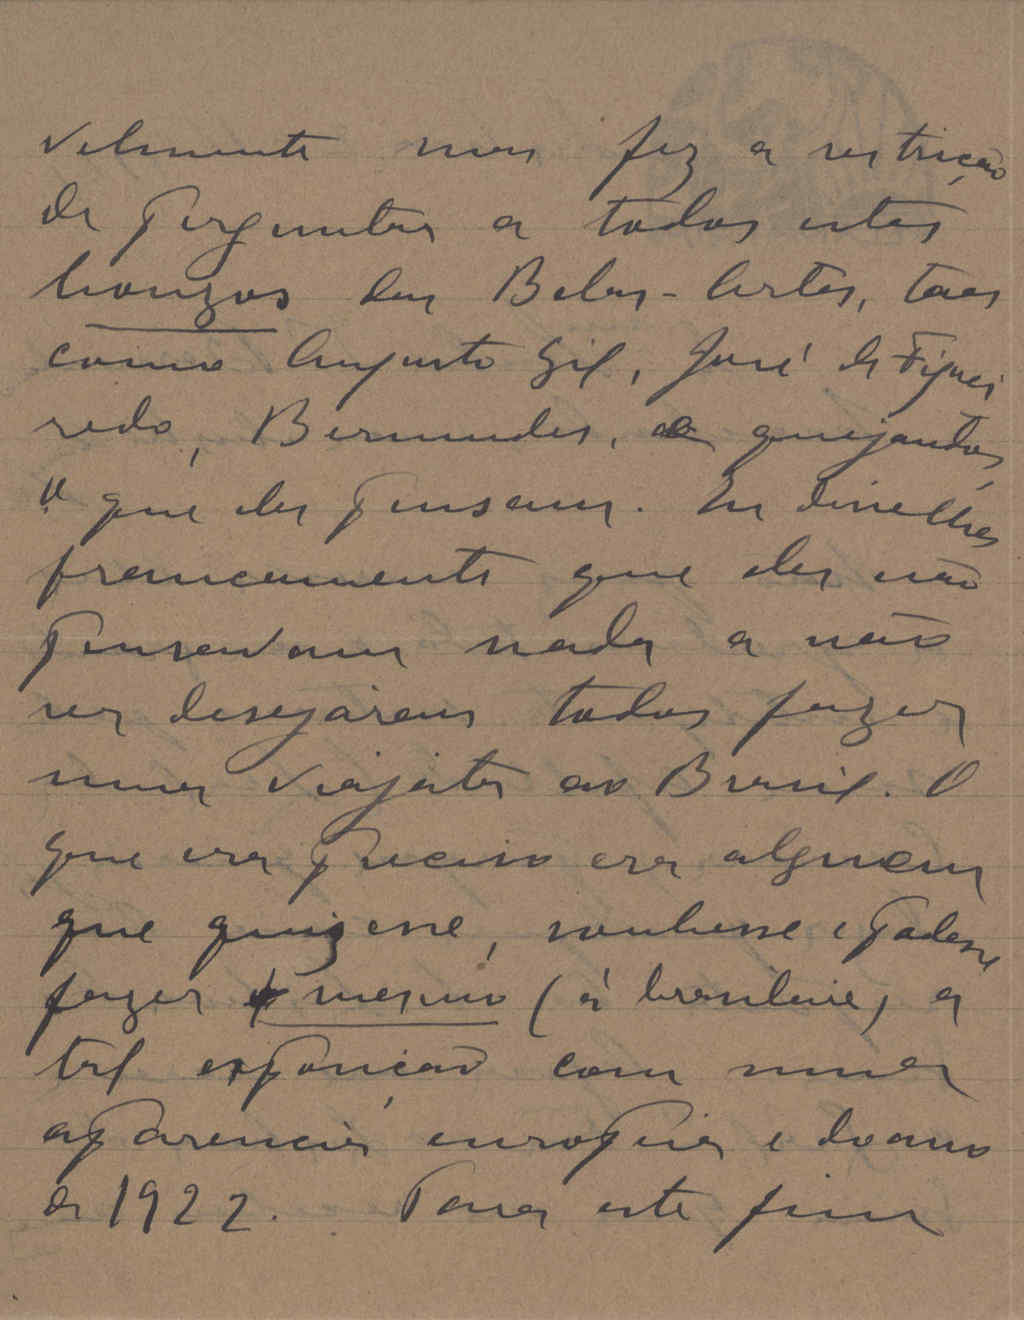 velmente mas fez a restrição
de perguntar a todos estes
bonzos das Belas-Artes, taes
como Augusto Gil, José de Figuei
redo, Bermudes, e quejandos,
o que eles pensam. Eu disse-lhes
francamente que eles não
pensavam nada a não
ser desejarem todos fazer
uma viajata ao Brasil. O
que era preciso era alguem
que quizesse, soubesse e podesse
fazer mesmo (á brasileira) a
tal exposição com uma
aparencia europeia e do ano
de 1922. Para este fim